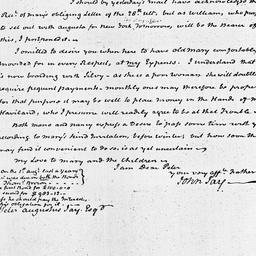 I should by yesterday's mail have acknowledged the
Rect. of mary's obliging Letter of the 28th ult. but as William, who pro
to set out with augusta for New York Tomorrow, will be the Bearer of
this, I postponed it.
I omitted to desire you when here to have old Mary comfortably
provided for in every Respect, at my Expense. I understand that
is now boarding with Silvy - as she is a poor woman she will doubtle
require frequent payments. monthly ones may therefore be proper
for that purpose it may be well to place money in the Hands of m
Haviland, who I presume will readily agree to be at that Trouble
Both mama and nancy express a Desire to pass some time with y
according to mary's kind Invitation, before winter, but how soon th
may find it convenient to do so, is as yet uncertain
My love to mary and the children
I am Dear Peter
your very affte. Father
John Jay
On the 1st augt. last a year's
was due on both the Bonds
The one Bond for
second for
he should pay the Interest
his obligation for it
Peter Augustus Jay. Esqr.